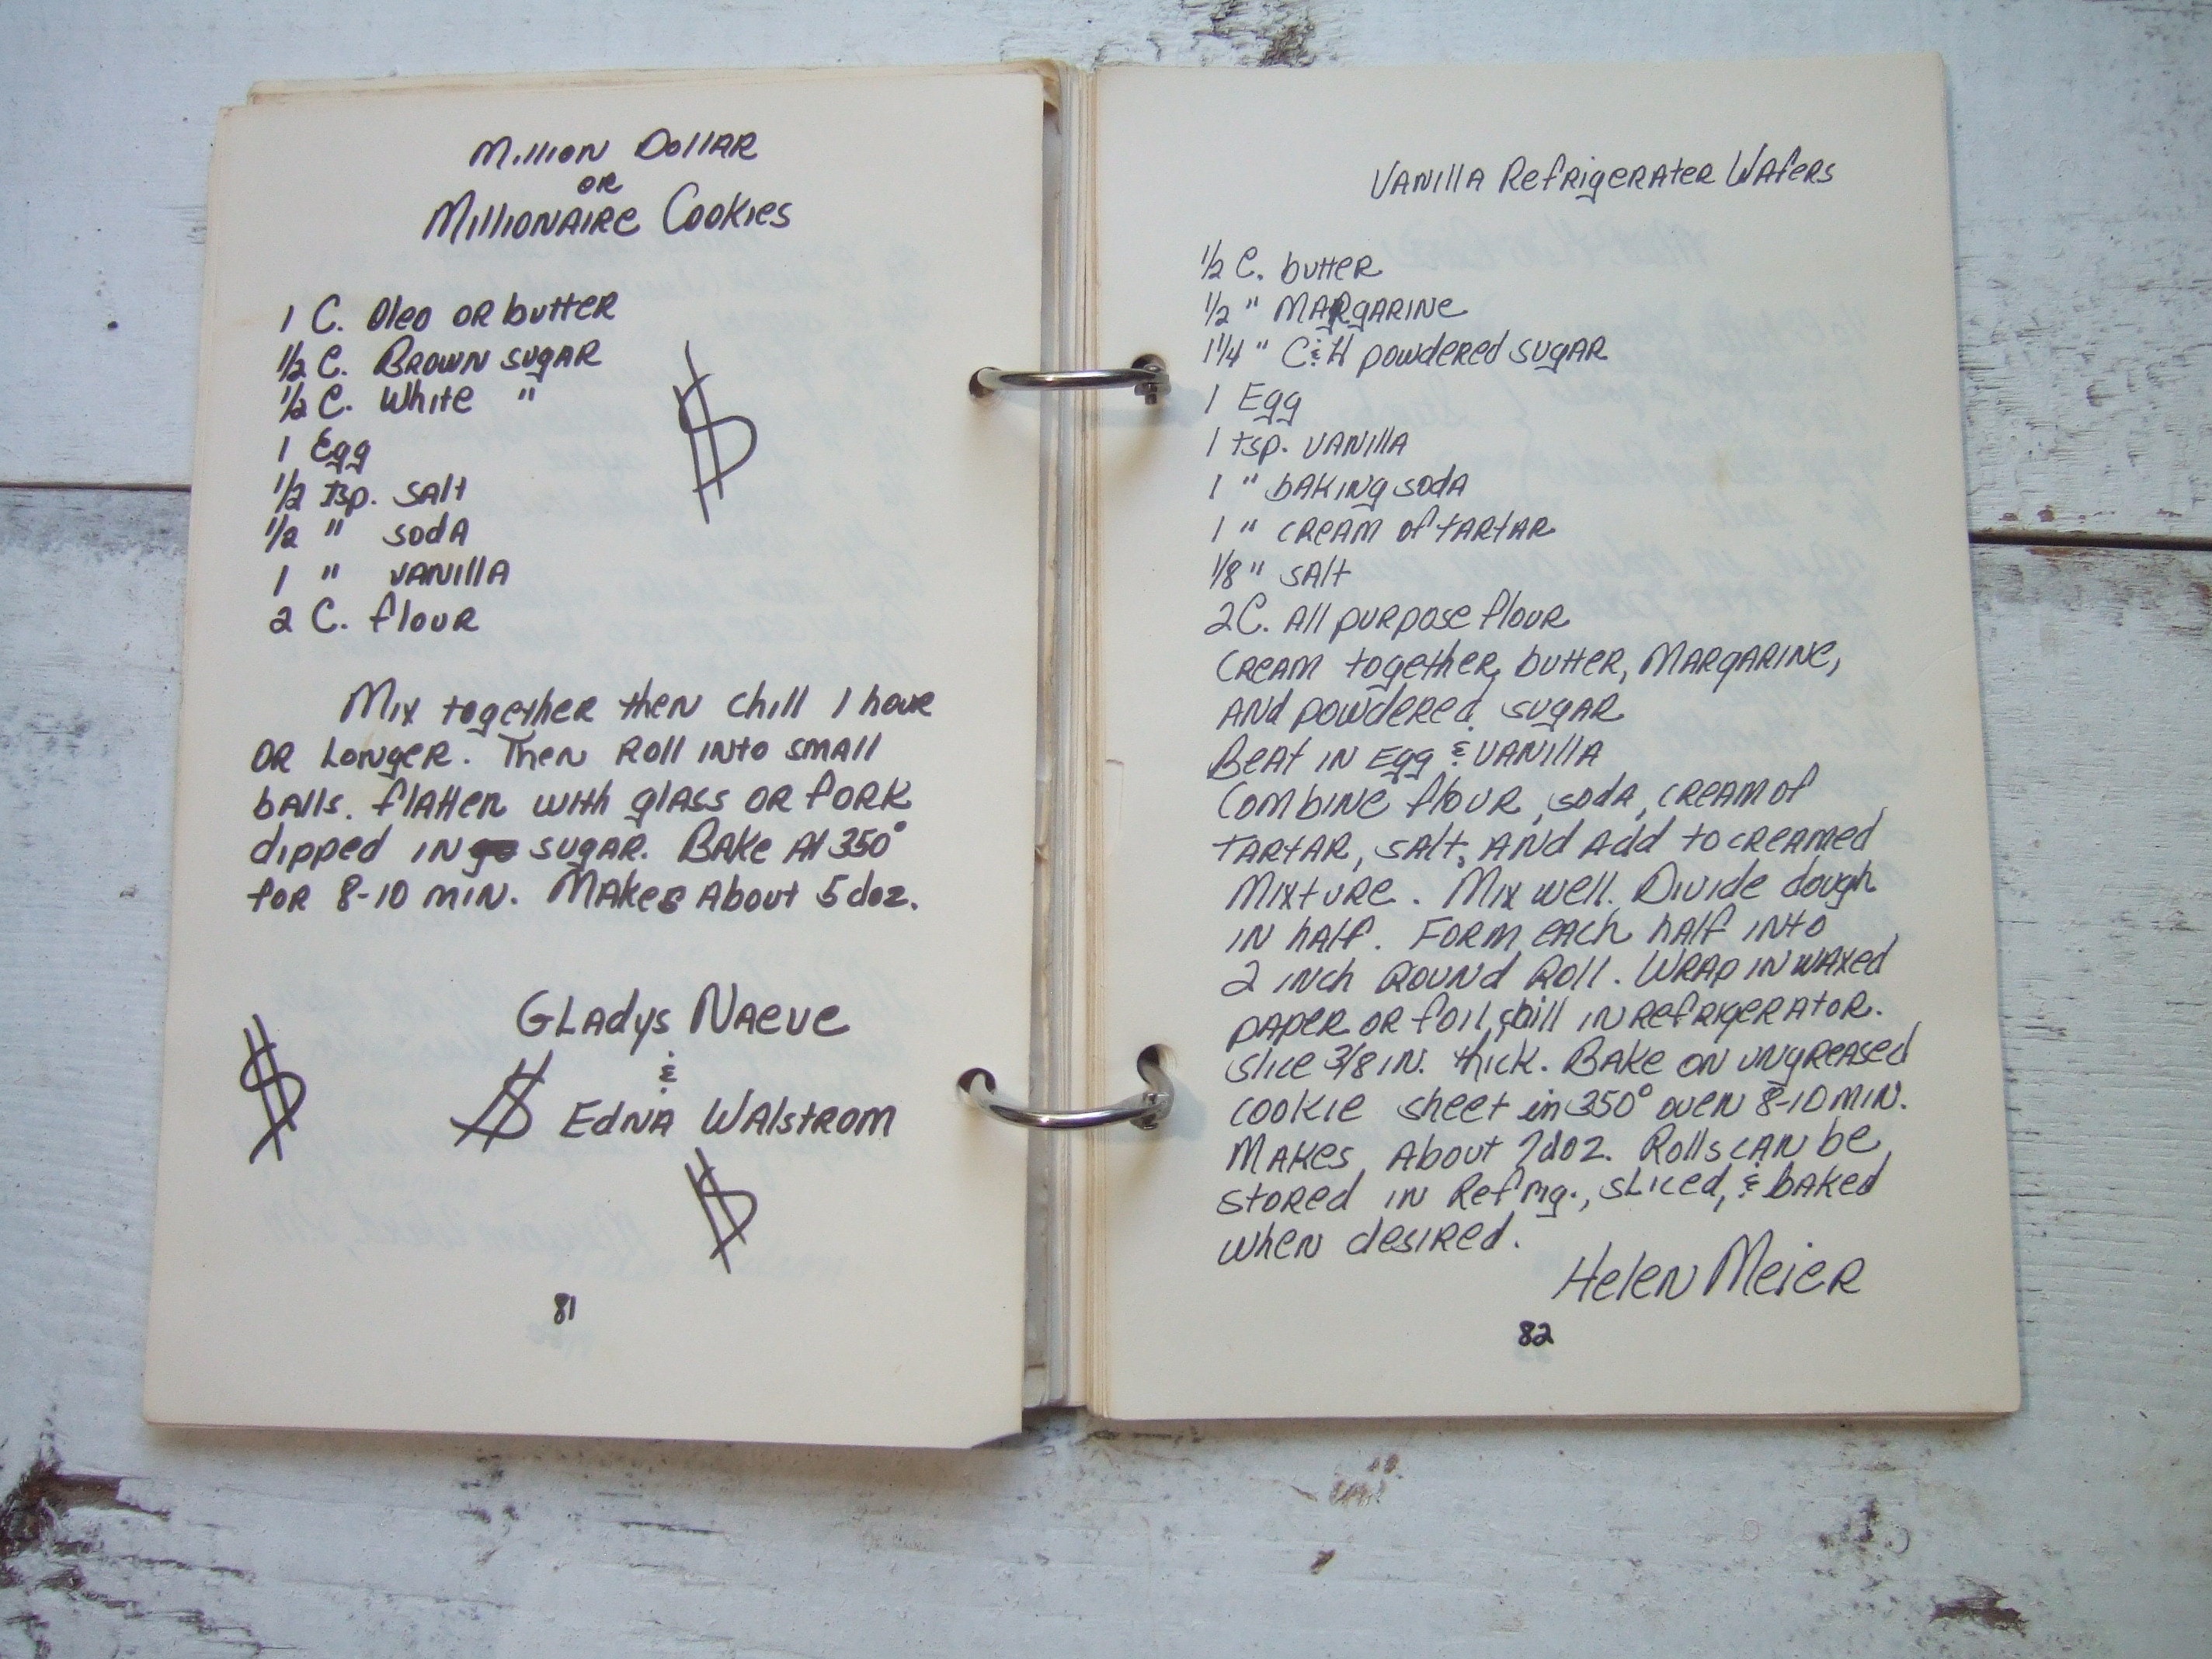 Million Dollar
or
Millionaire Cookies
1 C. Oleo or butter
1/2 C. Brown sugar
1/2 C. White "
1 Egg
1/2 tsp. salt
1/2 " soda
1 " vanilla
2 C. flour
Mix together then chill 1 hour
or Longer. Then Roll into small
balls. flatten with glass or fork
dipped in sugar. Bake At 350°
for 8-10 min. Makes About 5 doz.
$
Gladys Naeve
&
$ $ Edna Walstrom
$
81
Vanilla Refrigerater Wafers
1/2 C. butter
1/2 " Margarine
1 1/4 " C&H powdered sugar
1 Egg
1 tsp. vanilla
1 " baking soda
1 " cream of tartar
1/8 " salt
2 C. All purpose flour
Cream together, butter, Margarine,
And powdered sugar
Beat in Egg & vanilla
Combine flour, soda, cream of
tartar, salt, And Add to creamed
Mixture. Mix well. Divide dough
in half. Form each half into
2 inch Round Roll. Wrap in waxed
paper or foil, in refrigerator.
slice 3/8 in. thick. Bake on ungreased
cookie sheet in 350° oven 8-10 min.
Makes About doz. Rolls can be
stored in Refrig., sliced, & baked
when desired.
Helen Meier
82